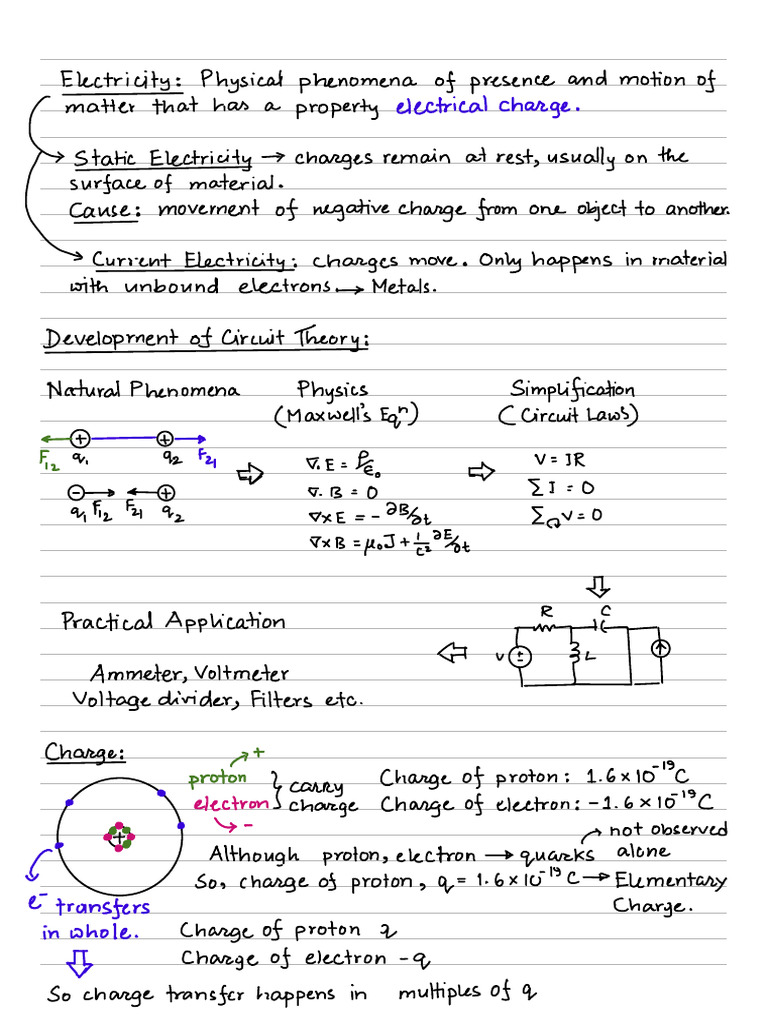 Electricity: Physical phenomena of presence and motion of
matter that has a property electrical charge.
Static Electricity → charges remain at rest, usually on the
surface of material.
Cause: movement of negative charge from one object to another.
Current Electricity: charges move. Only happens in material
with unbound electrons → Metals.
Development of Circuit Theory:
Natural Phenomena
Physics
(Maxwell's Eqⁿ)
Simplification
(Circuit Laws)
+ +
F₁₂ q₁ q₂ F₂₁
- +
q₁ F₁₂ F₂₁ q₂
⇨
∇. E = ρ/ε₀
∇. B = 0
∇×E = - ∂B/∂t
∇×B = μ₀J + 1/c² ∂E/∂t
⇨
V = IR
∑ I = 0
∑ V = 0
⇩
R C
V ± L
⇦
Practical Application
Ammeter, Voltmeter
Voltage divider, Filters etc.
Charge:
proton → +
electron → -
} carry
charge
Charge of proton: 1.6 × 10⁻¹⁹ C
Charge of electron: -1.6 × 10⁻¹⁹ C
+
Although proton, electron → quarks → not observed
alone
So, charge of proton, q = 1.6 × 10⁻¹⁹ C → Elementary
Charge.
e⁻ transfers
in whole.
Charge of proton q
Charge of electron -q
⇩
So charge transfer happens in multiples of q